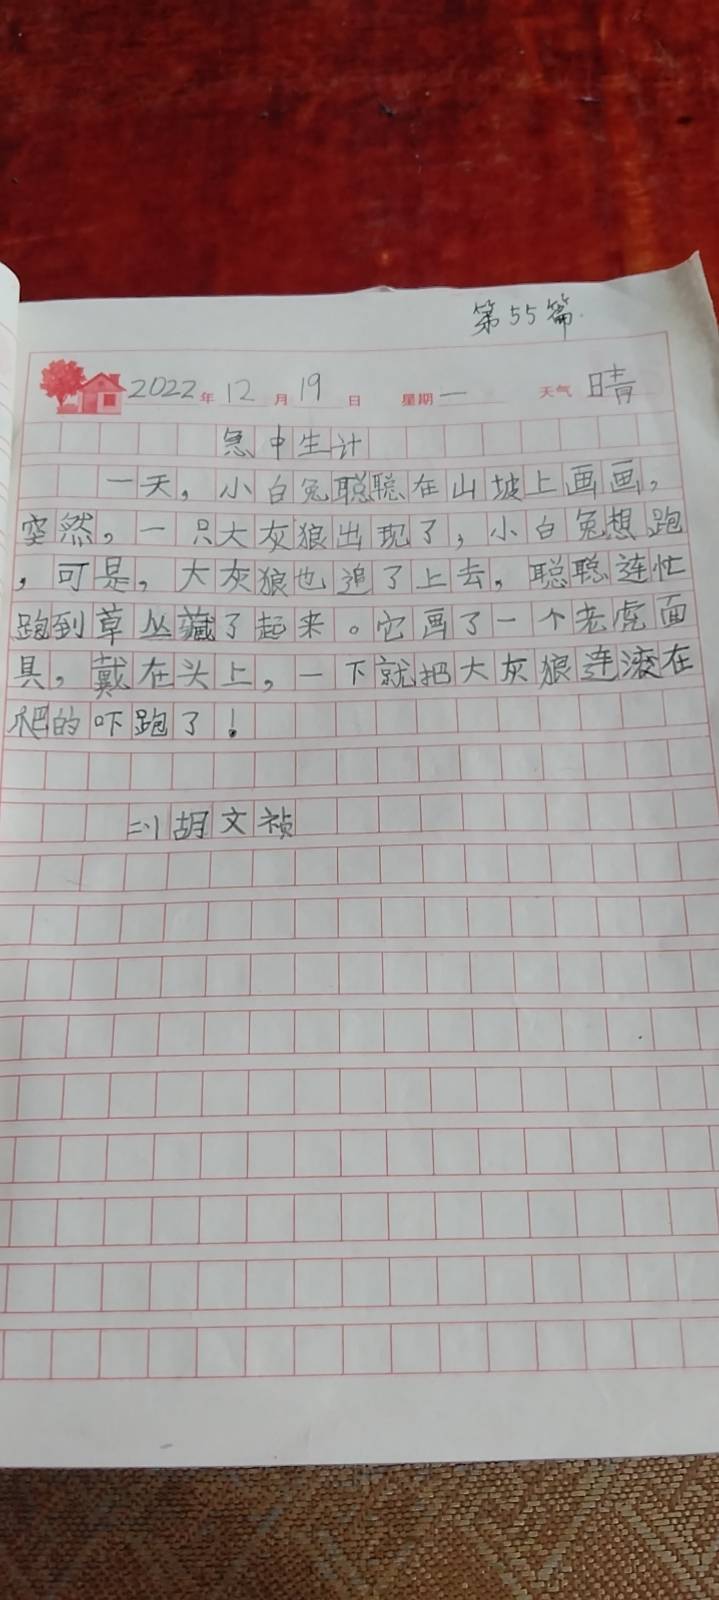 第55篇.
2022年12月19日 星期一 天气晴
急中生计
一天，小白兔聪聪在山坡上画画，
突然，一只大灰狼出现了，小白兔想跑
，可是，大灰狼也追了上去，聪聪连忙
跑到草丛藏了起来。它画了一个老虎面
具，戴在头上，一下就把大灰狼连滚在
爬的吓跑了！
二1胡文祯